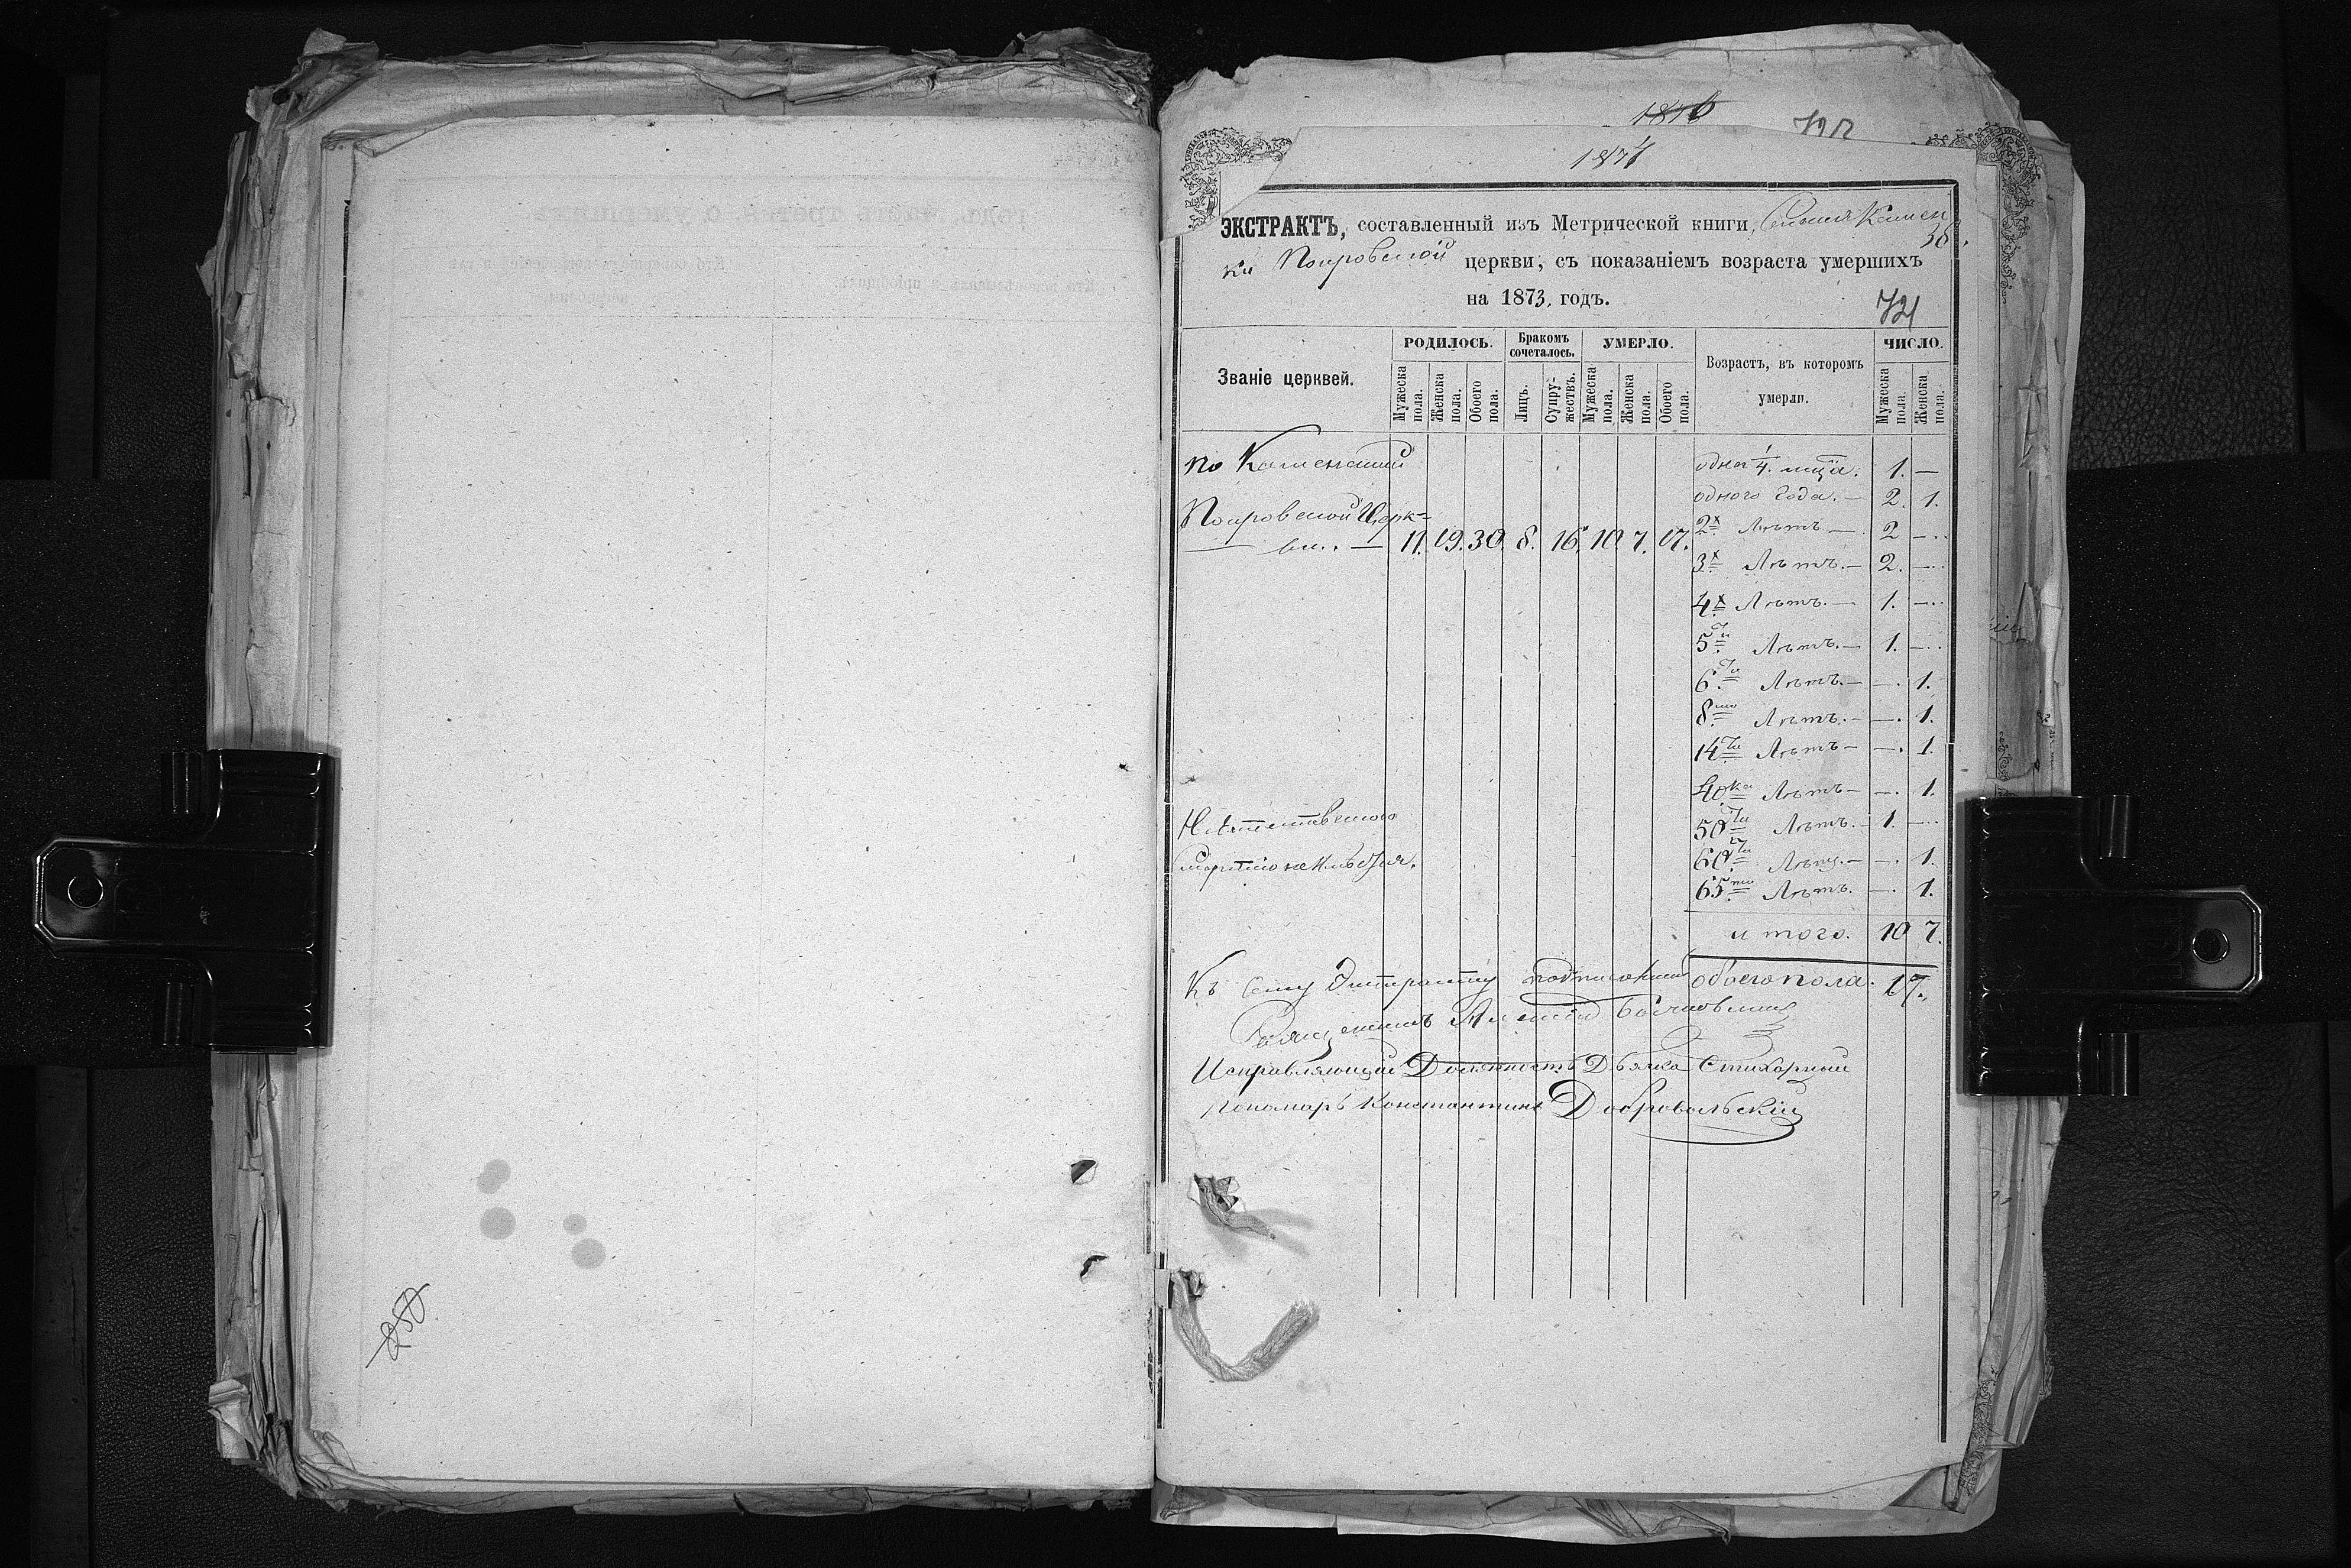 250
1876
1877
ЭКСТРАКТЪ, составленный изъ Метрической книги, Камен
38.
ки Покровской церкви, съ показаніемъ возраста умершихъ
на 1873, годъ.
721
Званіе церквей.
РОДИЛОСЬ.
Бракомъ сочеталось.
УМЕРЛО.
Возрастъ, въ которомъ умерли.
ЧИСЛО.
Мужеска пола.
Женска пола.
Обоего пола.
Лицъ.
Супружествъ.
Мужеска пола.
Женска пола.
Обоего пола.
Мужеска пола.
Женска пола.
по Каменской
Покровской Церк=
— ви. — 11. 19. 30. 8. 16. 10. 7. 17.
1/4. 1. —
одного года. — 2. 1.
2х Лѣтъ — 2 —
3х Лѣтъ. — 2. —
4х Лѣтъ. — 1. —
5ти Лѣтъ. — 1. —
6ти Лѣтъ. — —. 1.
8ми Лѣтъ. — —. 1.
14ти Лѣтъ — —. 1.
40ка Лѣтъ — —. 1.
50ти Лѣтъ. — 1. —
60ти Лѣтъ. — —. 1.
65ти Лѣтъ. —. 1.
и того. 10 7.
обоего пола. 17.
Къ сему Экстракту
Священникъ Алексій
Исправляющій Должность Дьячка Стихарный
Пономарь Константинъ Добровольскій